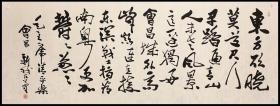 東方欲曉
莫道君行
早踏遍青山
人未老風景
這邊獨好
會昌城外高
峰顛連直接
東溟戰士指看
南粵更加
鬱鬱葱葱
毛主席清平樂
會昌